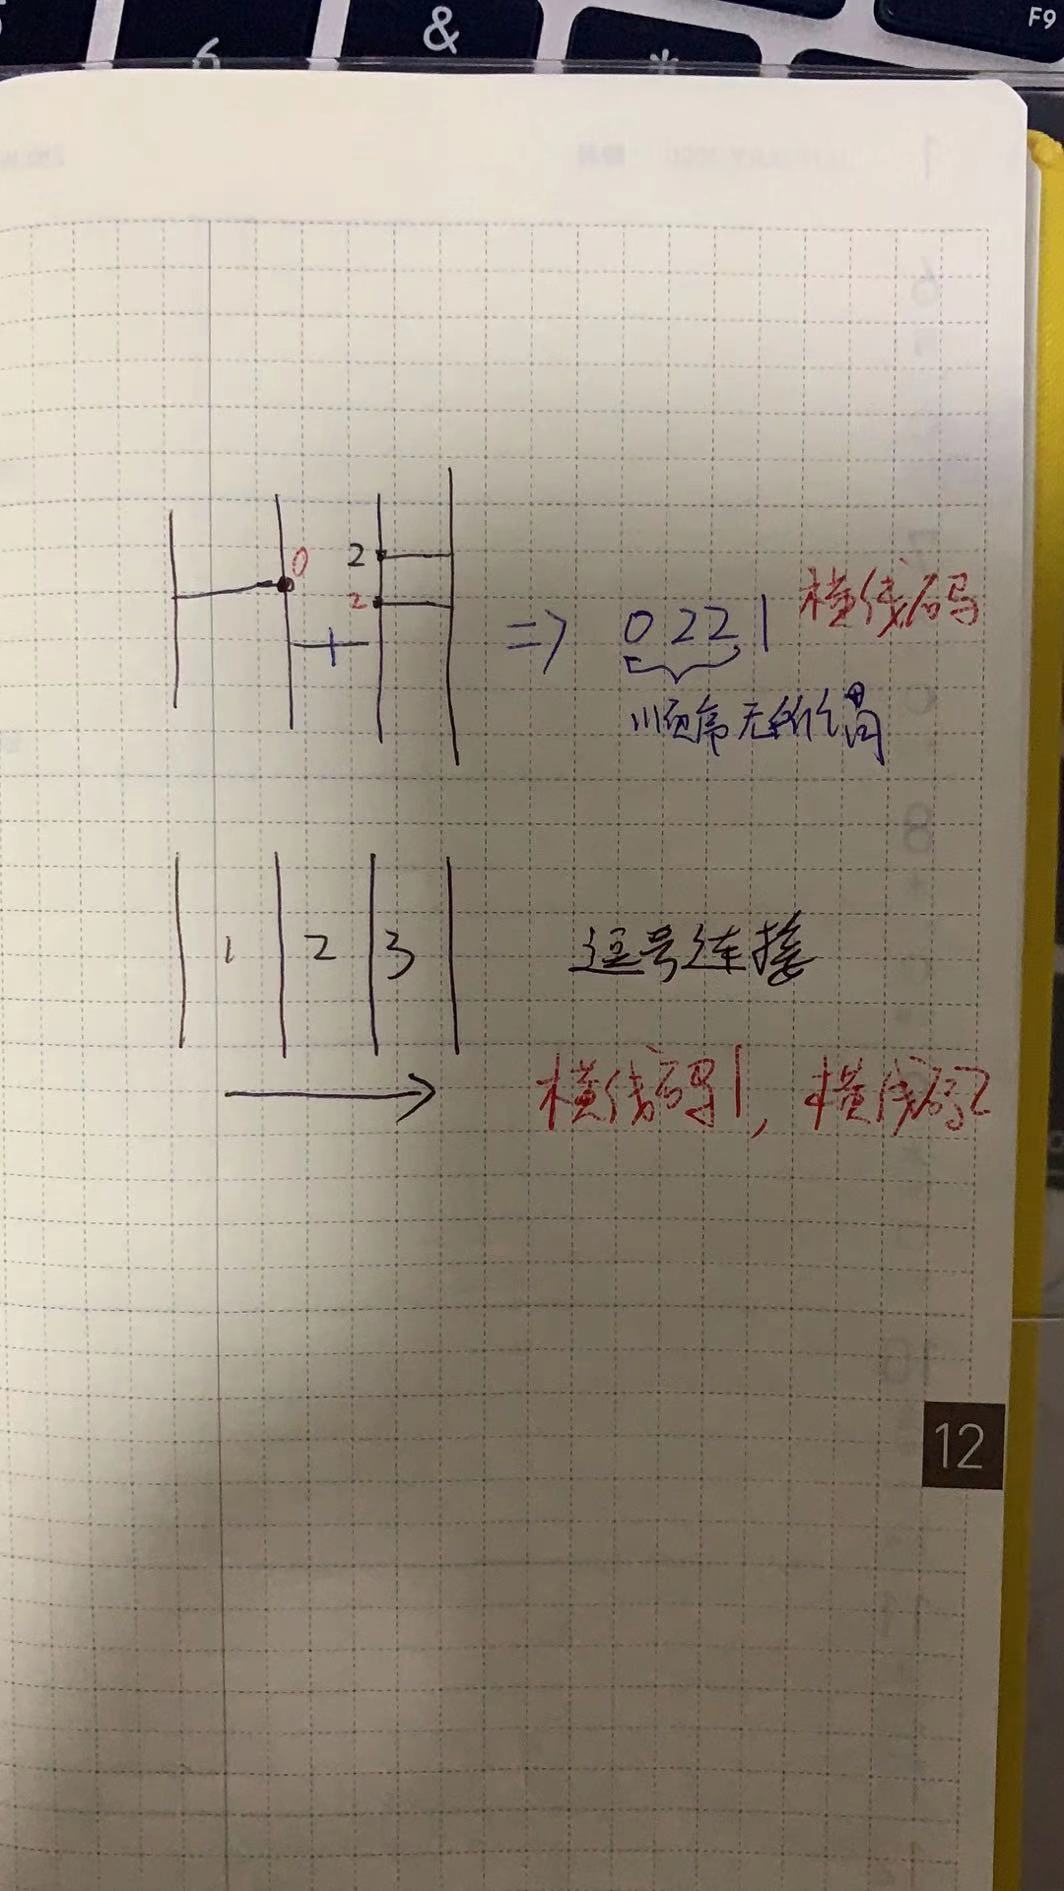 6
&
*
F9
0
2
2
1
=> 0221 横线码
顺序无所谓
1 2 3
逗号连接
横线码1, 横线码2
12